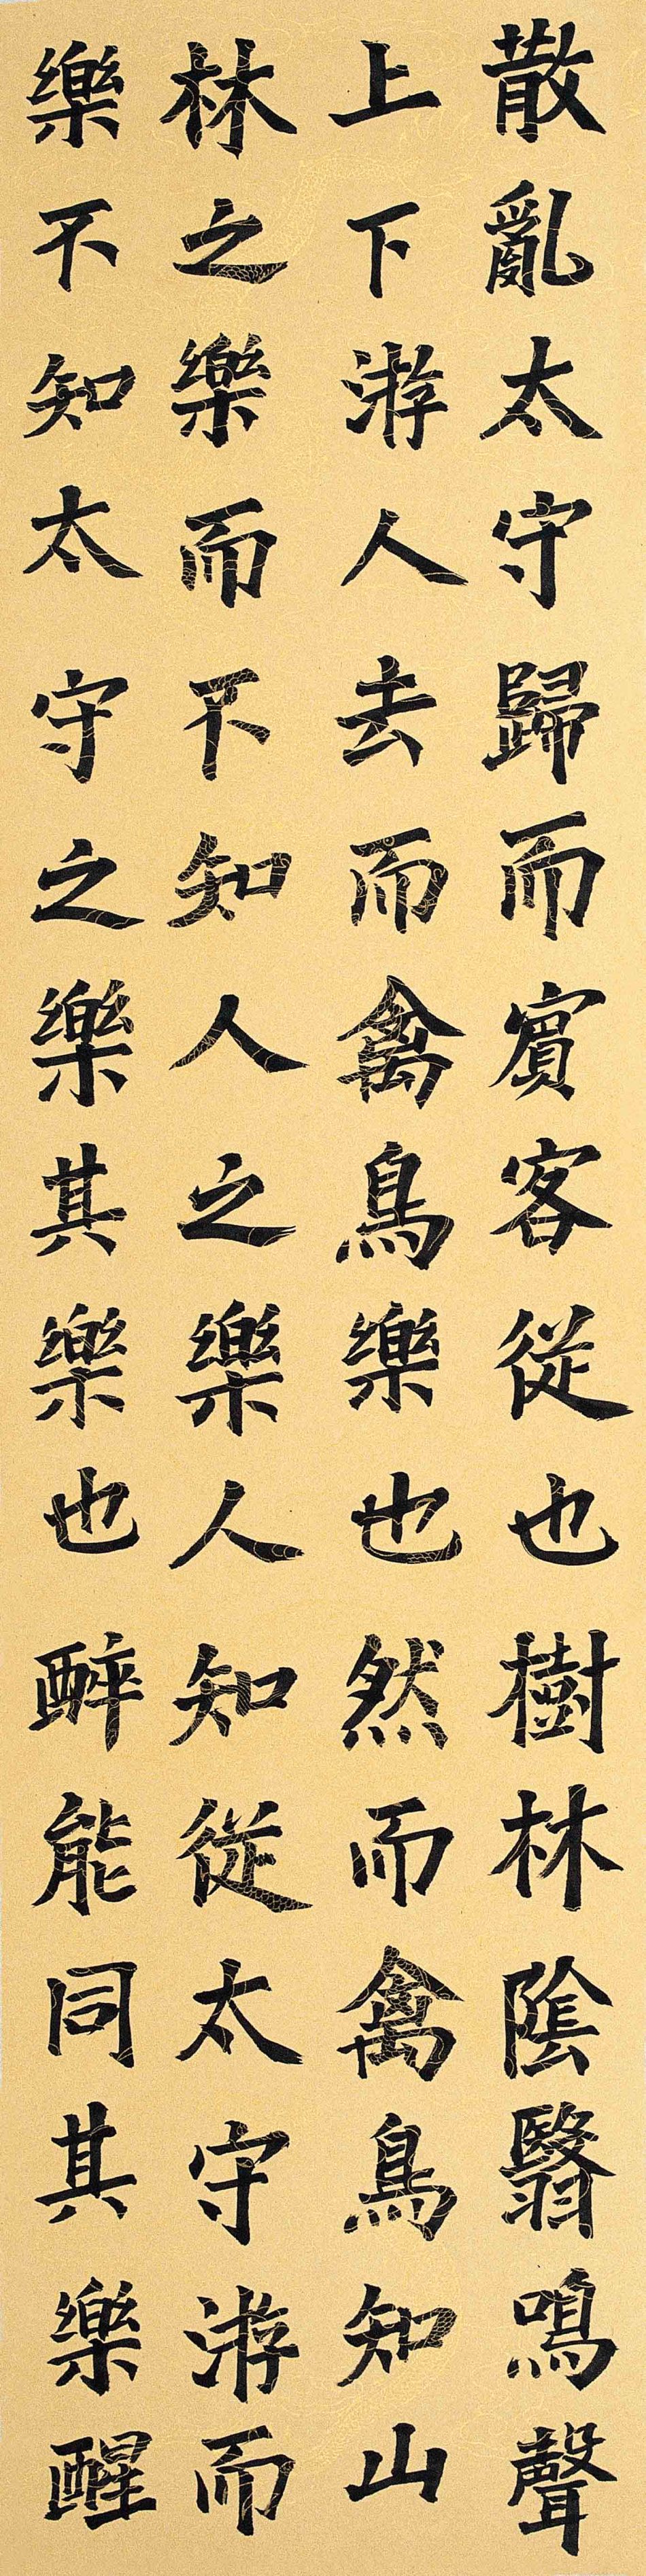 散亂太守歸而賓客從也樹林陰翳鳴聲
上下游人去而禽鳥樂也然而禽鳥知山
林之樂而不知人之樂人知從太守游而
樂不知太守之樂其樂也醉能同其樂醒